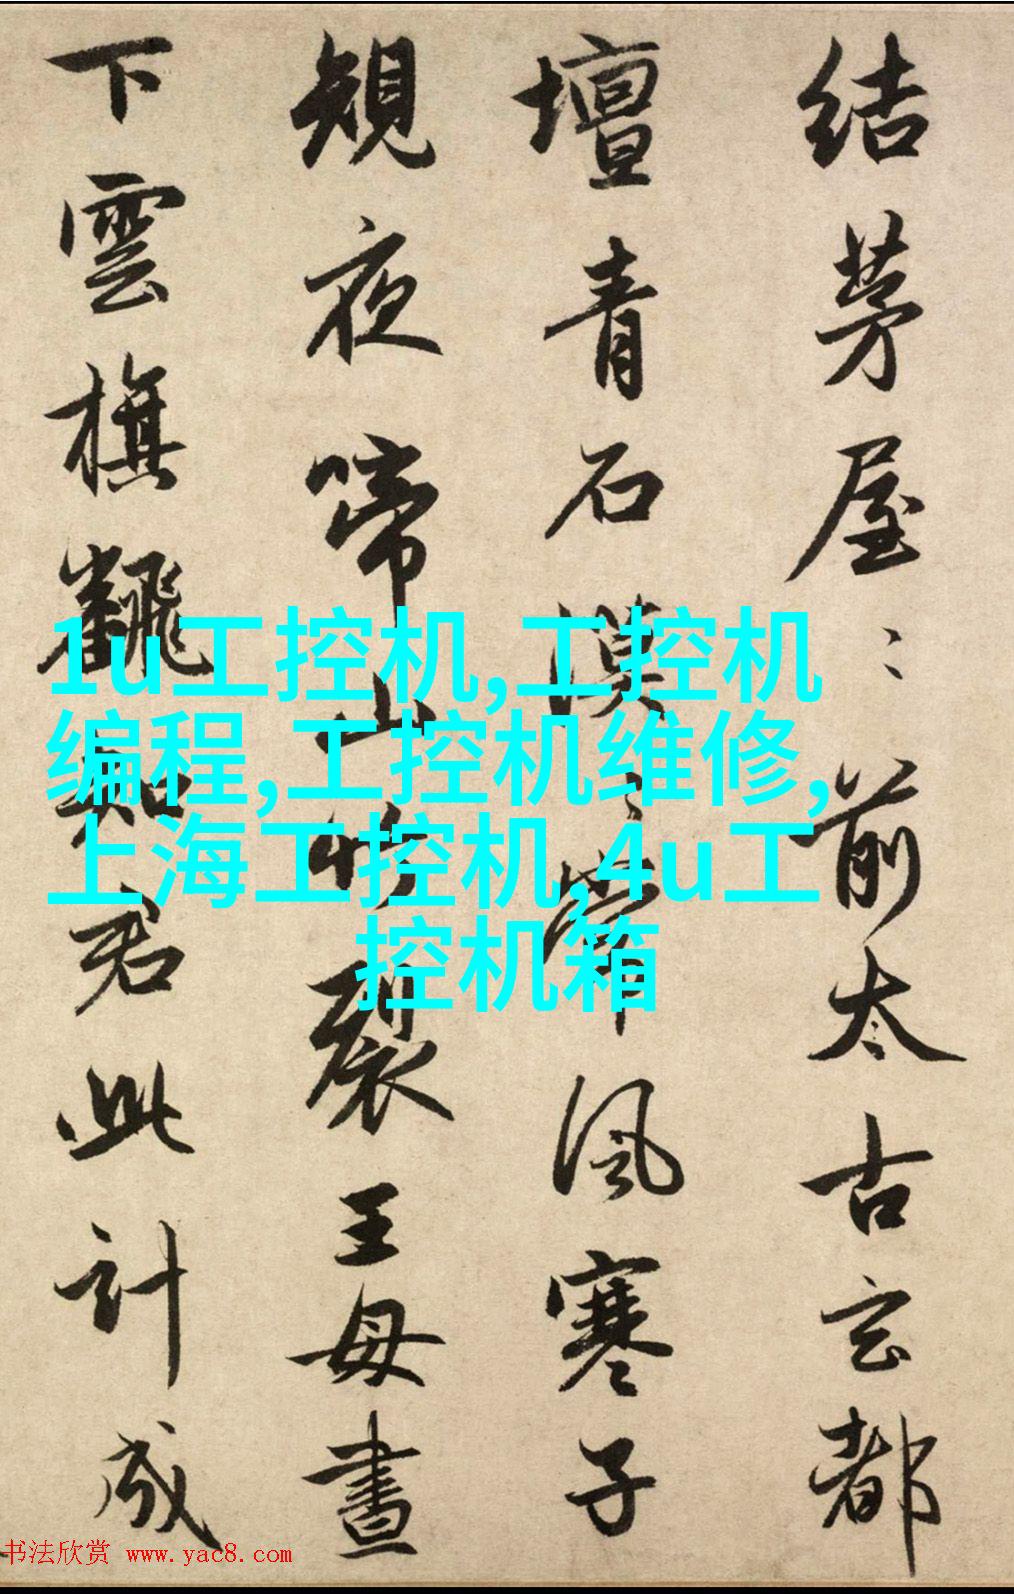 結茅屋〻前太古玄都
壇青石漠〻常風寒子
規夜啼山竹裂王母晝
下雲旗飜知君此計成
1u工控机,工控机
编程,工控机维修,
上海工控机,4u工
控机箱
书法欣赏 www.yac8.com